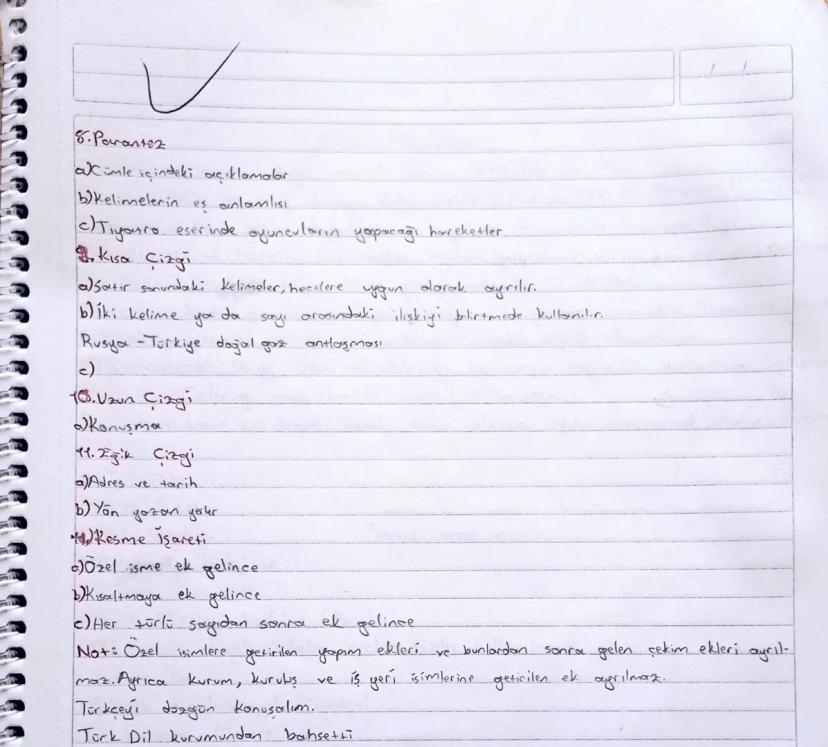 8.Parantez
a)Cümle içindeki açıklamalar
b)Kelimelerin eş anlamlısı
c)Tiyanro eserinde oyuncuların yapacağı hareketler
9.Kısa Çizgi
a)Satır sonundaki kelimeler, hecelere uygun olarak ayrılır.
b)İki kelime ya da sayı arasındaki ilişkiyi blirtmede kullanılır.
Rusya -Türkiye doğal gaz antlaşması
c)
10.Uzun Çizgi
a)Konuşma
11.Eğik Çizgi
a)Adres ve tarih
b)Yön yazan yerler
)Kesme İşareti
a)Özel isme ek gelince
b)Kısaltmaya ek gelince
c)Her türlü sayıdan sonra ek gelince
Not: Özel isimlere getirilen yapım ekleri ve bunlardan sonra gelen çekim ekleri ayrıl-
maz. Ayrıca kurum, kuruluş ve iş yeri isimlerine getirilen ek ayrılmaz.
Türkçeyi düzgün konuşalım.
Türk Dil kurumundan bahsetti